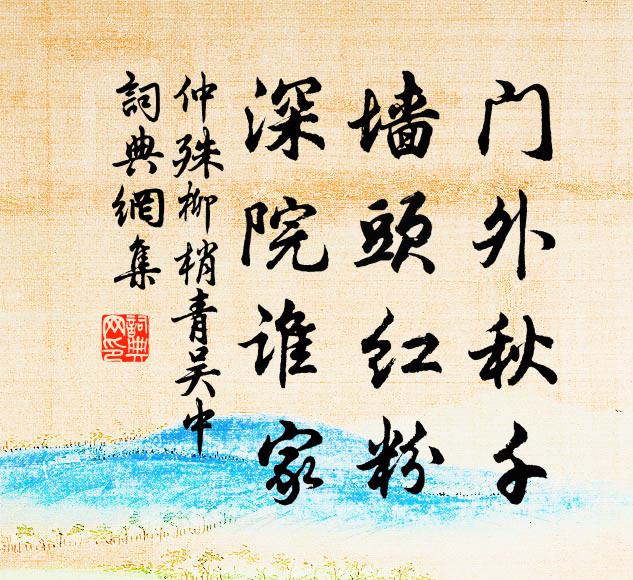 门外秋千
墙頭红粉
深院谁家
仲殊柳梢青吴中
詞典網集
詞典网印